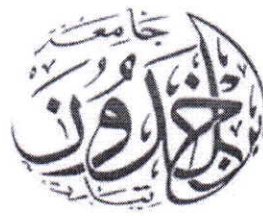 جَامِعَة
ابْن خَلْدُون
تيارت